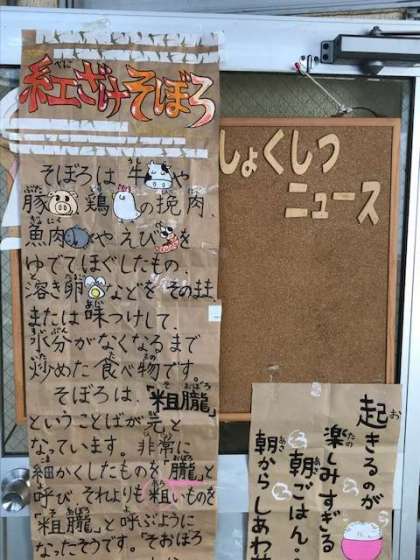 紅ざけそぼろ
そぼろは牛や
豚鶏の挽肉、
魚肉やえびを
ゆでてほぐしたもの、
溶き卵などをそのまま、
または味つけして、
水分がなくなるまで
炒めた食べ物です。
そぼろは、「粗朧」
ということばが元と
なっています。非常に
細かくしたものを「朧」と
呼び、それよりも粗いものを
「粗朧」と呼ぶように
なったそうです。「そおぼろ
しょくしつ
ニュース
起きるのが
楽しみすぎる
朝ごはん‥
朝からしあわせ